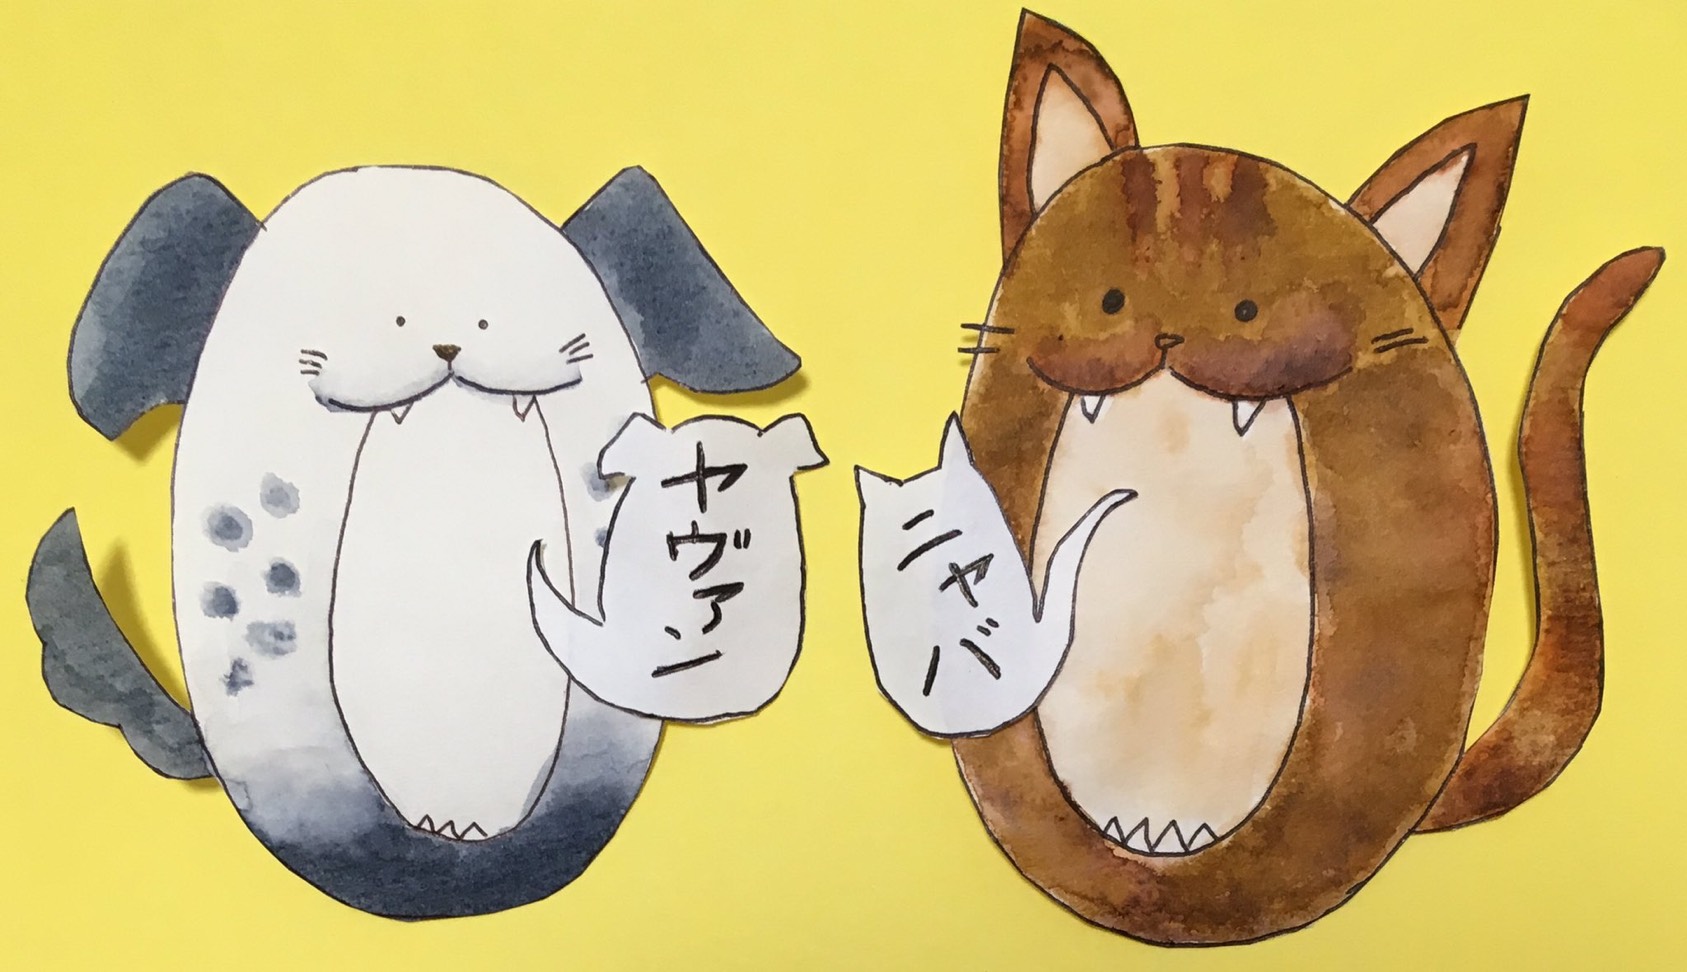 ヤヴァン
ニャバ